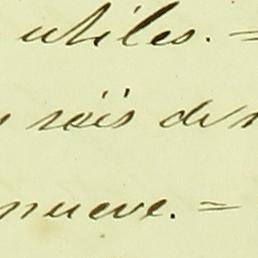 utiles. =
seis de
nueve. =